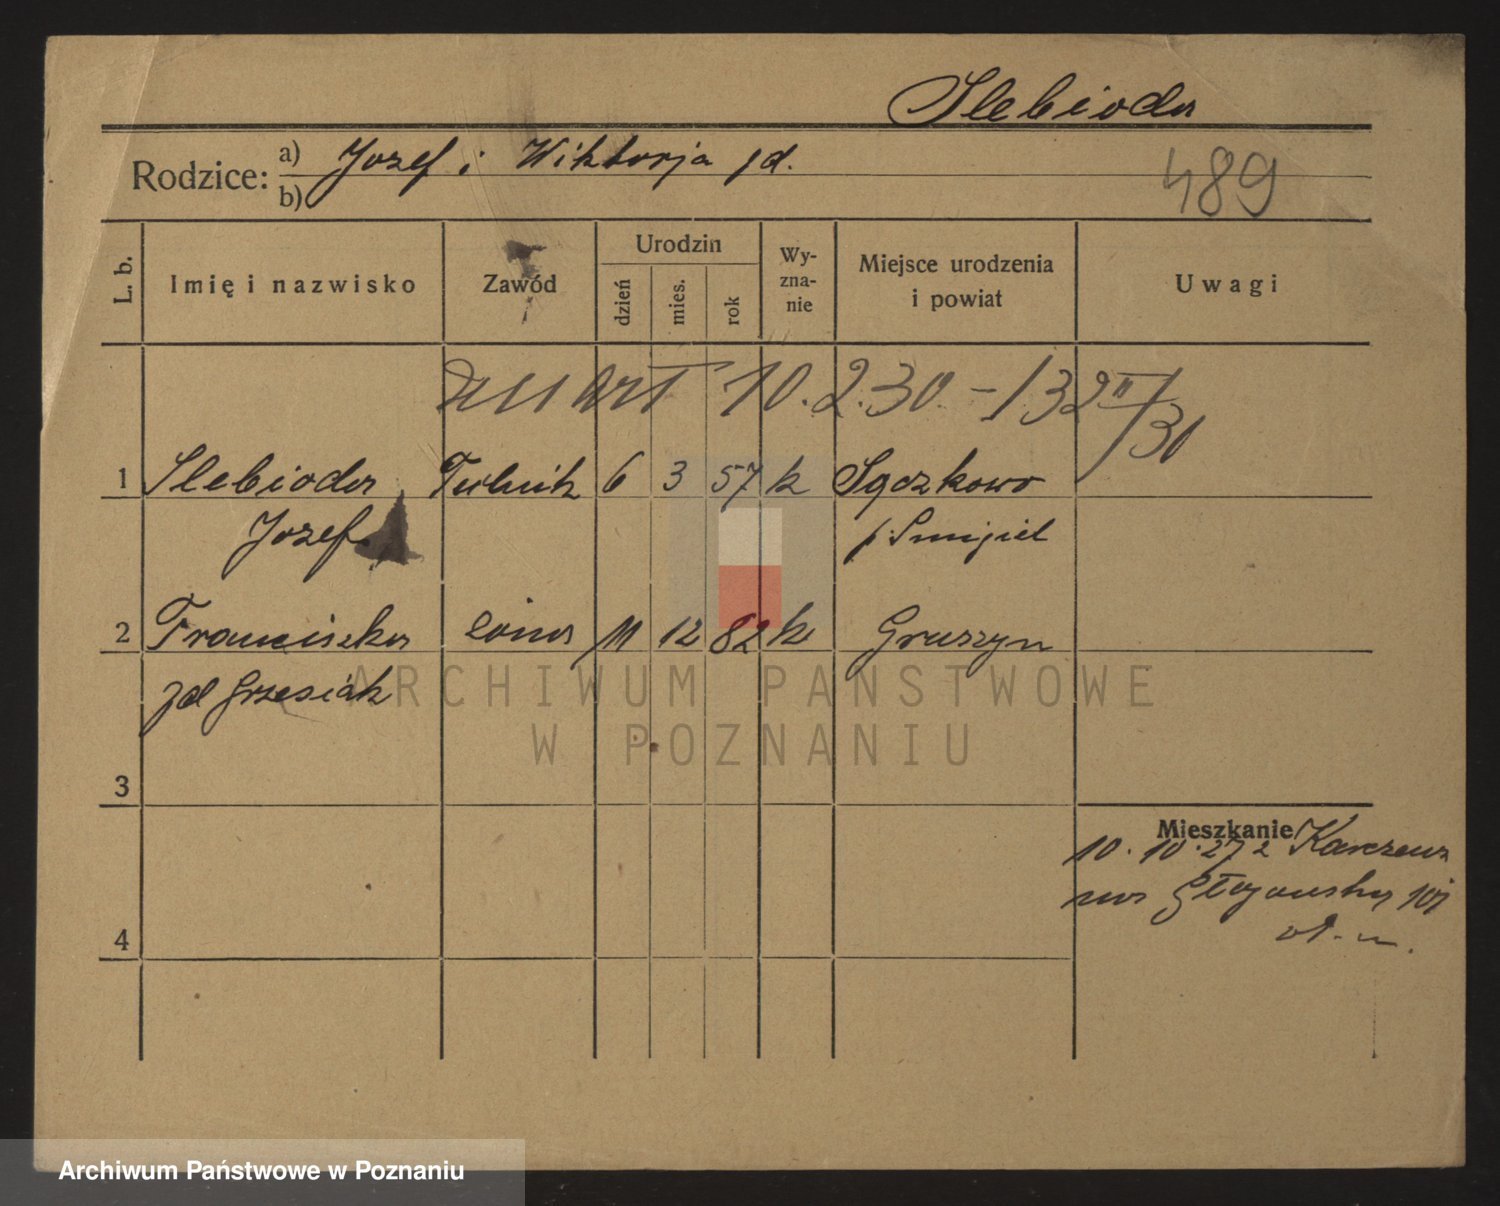 Slebioda
Rodzice: a) Jozef i Wiktorja jd.
b)
489
L. b. Imię i nazwisko Zawód Urodzin dzień mies. rok Wy-zna-nie Miejsce urodzenia i powiat Uwagi
zmarł 10.2.30 - 132 II/30
1 Slebioda 6 3 57 k Sączkowo
Jozef p. Smigiel
2 Franciszka żona 11 12 82 k Gruszyn
zd Grzesiak
3
Mieszkanie
10.10.27 z Karczewa
na Głogowska 101
4
ARCHIWUM PAŃSTWOWE
W POZNANIU
Archiwum Państwowe w Poznaniu